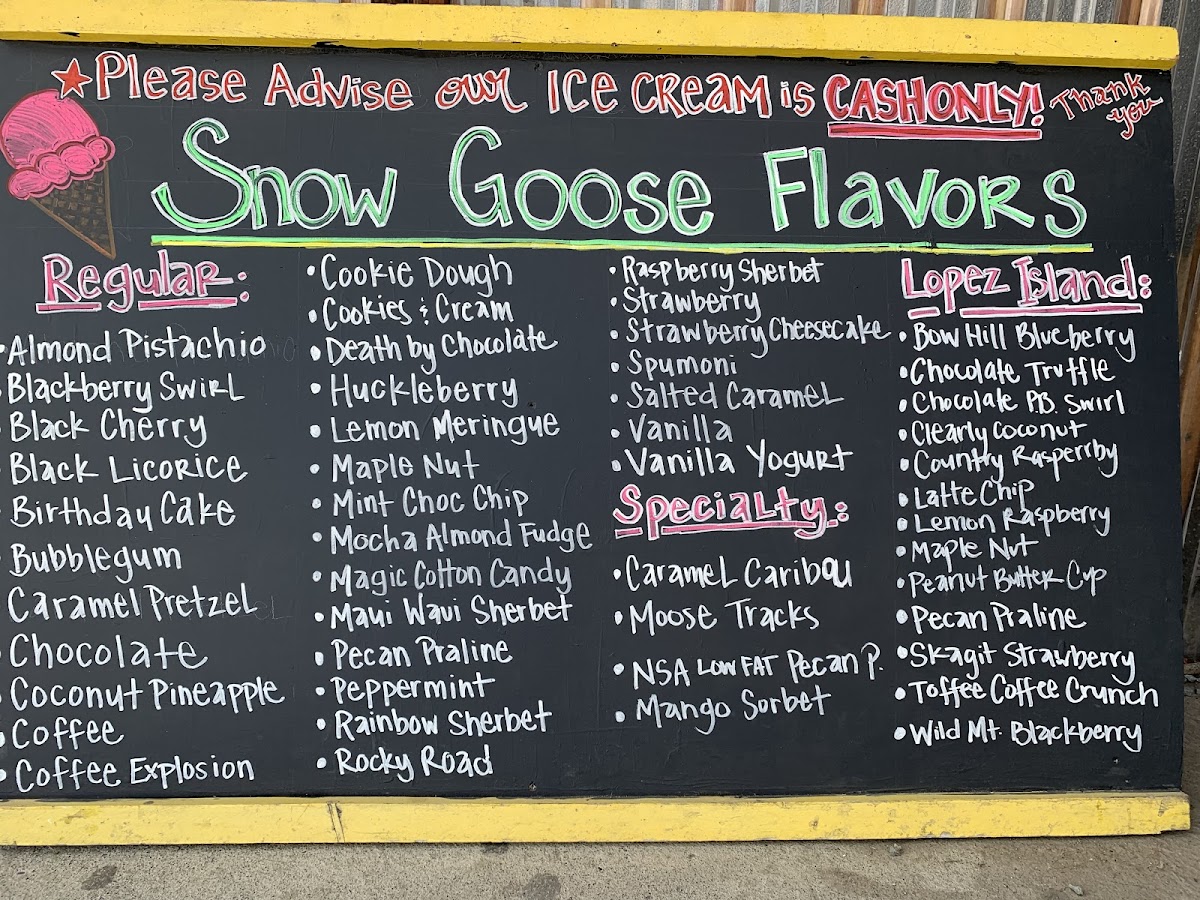 ★Please Advise our ICE CREAM is CASH ONLY! Thank you
Snow Goose Flavors
Regular:
Almond Pistachio
Blackberry Swirl
Black Cherry
Black Licorice
Birthday Cake
Bubblegum
Caramel Pretzel
Chocolate
Coconut Pineapple
Coffee
Coffee Explosion
Cookie Dough
Cookies & Cream
Death by Chocolate
Huckleberry
Lemon Meringue
Maple Nut
Mint Choc Chip
Mocha Almond Fudge
Magic Cotton Candy
Maui Waui Sherbet
Pecan Praline
Peppermint
Rainbow Sherbet
Rocky Road
Raspberry Sherbet
Strawberry
Strawberry Cheesecake
Spumoni
Salted Caramel
Vanilla
Vanilla Yogurt
Specialty:
Caramel Caribou
Moose Tracks
NSA LOW FAT Pecan P.
Mango Sorbet
Lopez Island:
Bow Hill Blueberry
Chocolate Truffle
Chocolate P.B. Swirl
Clearly Coconut
Country Rasperrby
Latte Chip
Lemon Raspberry
Maple Nut
Peanut Butter Cup
Pecan Praline
Skagit Strawberry
Toffee Coffee Crunch
Wild Mt. Blackberry